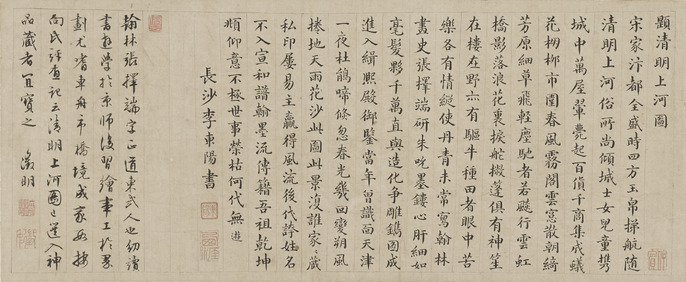 題清明上河圖
宋家汴都全盛時四方玉帛梯航隨
清明上河俗所尚傾城士女兒童携
城中萬屋翬甍起百貨千商集成蟻
花柳市圍春風霧閣雲窓散朝綺
芳原細草飛輕塵馳者若飈行雲虹
橋影落浪花裏捩舵撇蓬俱有神笙
在樓在野亦有驅牛種田者眼中苦
樂各有情縦使丹青未常寫翰林
畫史張擇端研朱吮墨鏤心肝細如
毫髮夥千萬直與造化争雕鐫圖成
進入緝熙殿御鑒當年曾識面天津
一夜杜鵑啼倐忽春光幾回變朔風
捲地天雨花沙此圖此景復誰家家藏
私印屡易主贏得風流後代誇姓名
不入宣和譜翰墨流傳籍吾祖乾坤
頫仰意不極世事榮枯何代無
長沙李東陽書
翰林張擇端字正道東武人也幼讀
書遊學於京師後習繪事工於界
畫尤嗜車舟市橋
向氏評
記云清明上河圖
選入神
品藏者宜寶之